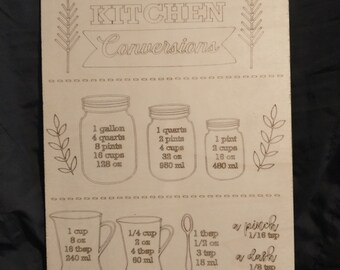 KITCHEN
Conversions
1 gallon
4 quarts
8 pints
16 cups
128 oz
1 quarts
2 pints
4 cups
32 oz
950 ml
1 pint
2 cups
16 oz
480 ml
1 cup
8 oz
16 tbsp
240 ml
1/4 cup
2 oz
4 tbsp
60 ml
1 tbsp
1/2 oz
3 tsp
15 ml
a pinch
1/16 tsp
a dash
1/8 tsp